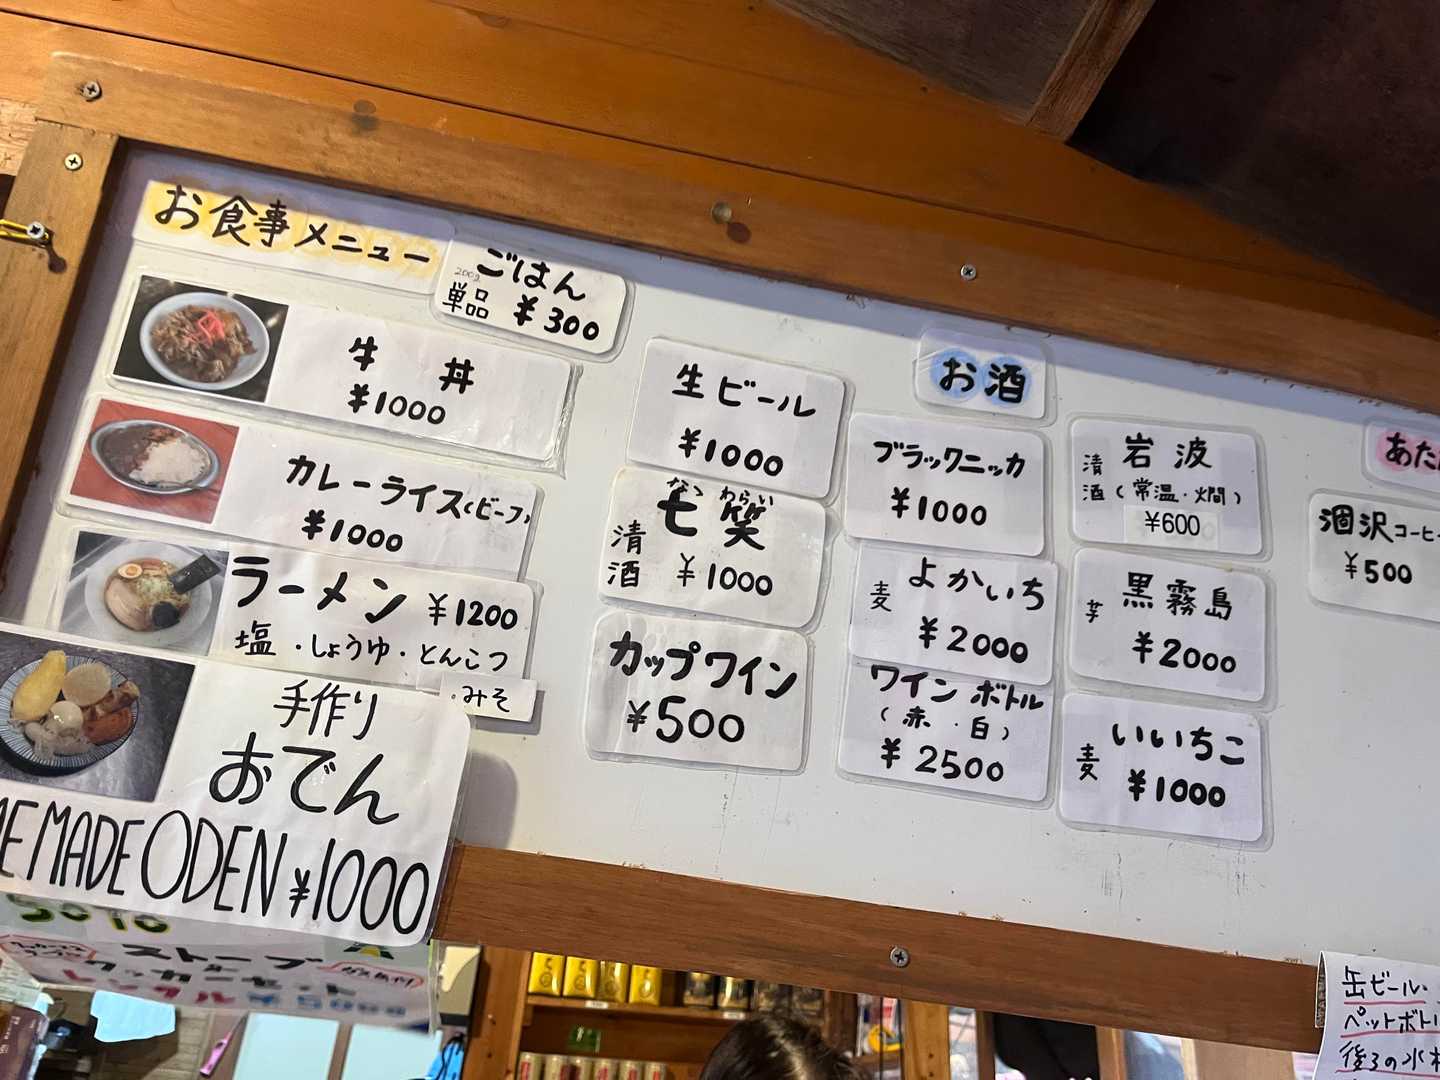 お食事メニュー
ごはん
200g
単品 ¥300
牛丼
¥1000
カレーライス(ビーフ)
¥1000
ラーメン ¥1200
塩・しょうゆ・とんこつ
・みそ
手作り
おでん
ME MADE ODEN ¥1000
生ビール
¥1000
なな わらい
七笑
清酒 ¥1000
カップワイン
¥500
お酒
ブラックニッカ
¥1000
麦 よかいち
¥2000
ワインボトル
(赤・白)
¥2500
岩波
清酒(常温・燗)
¥600
芋 黒霧島
¥2000
麦 いいちこ
¥1000
あた
涸沢コーヒー
¥500
5010
ストーブ
缶ビール・
ペットボトル
後ろの水